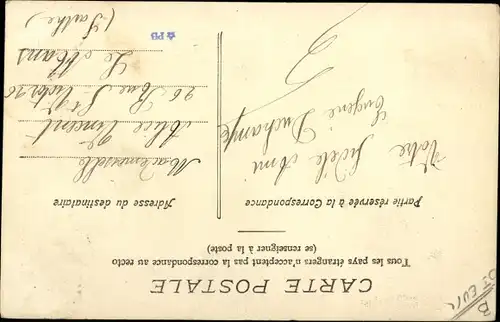 CARTE POSTALE
Tous les pays étrangers n'acceptent pas la correspondance au recto
(se renseigner à la poste)
Partie réservée à la Correspondance
Adresse du destinataire
Votre fidèle Ami
Eugène Duchampe
Mademoiselle
Alice Vincent
26 Rue
Le Mans
(Sarthe)
PB